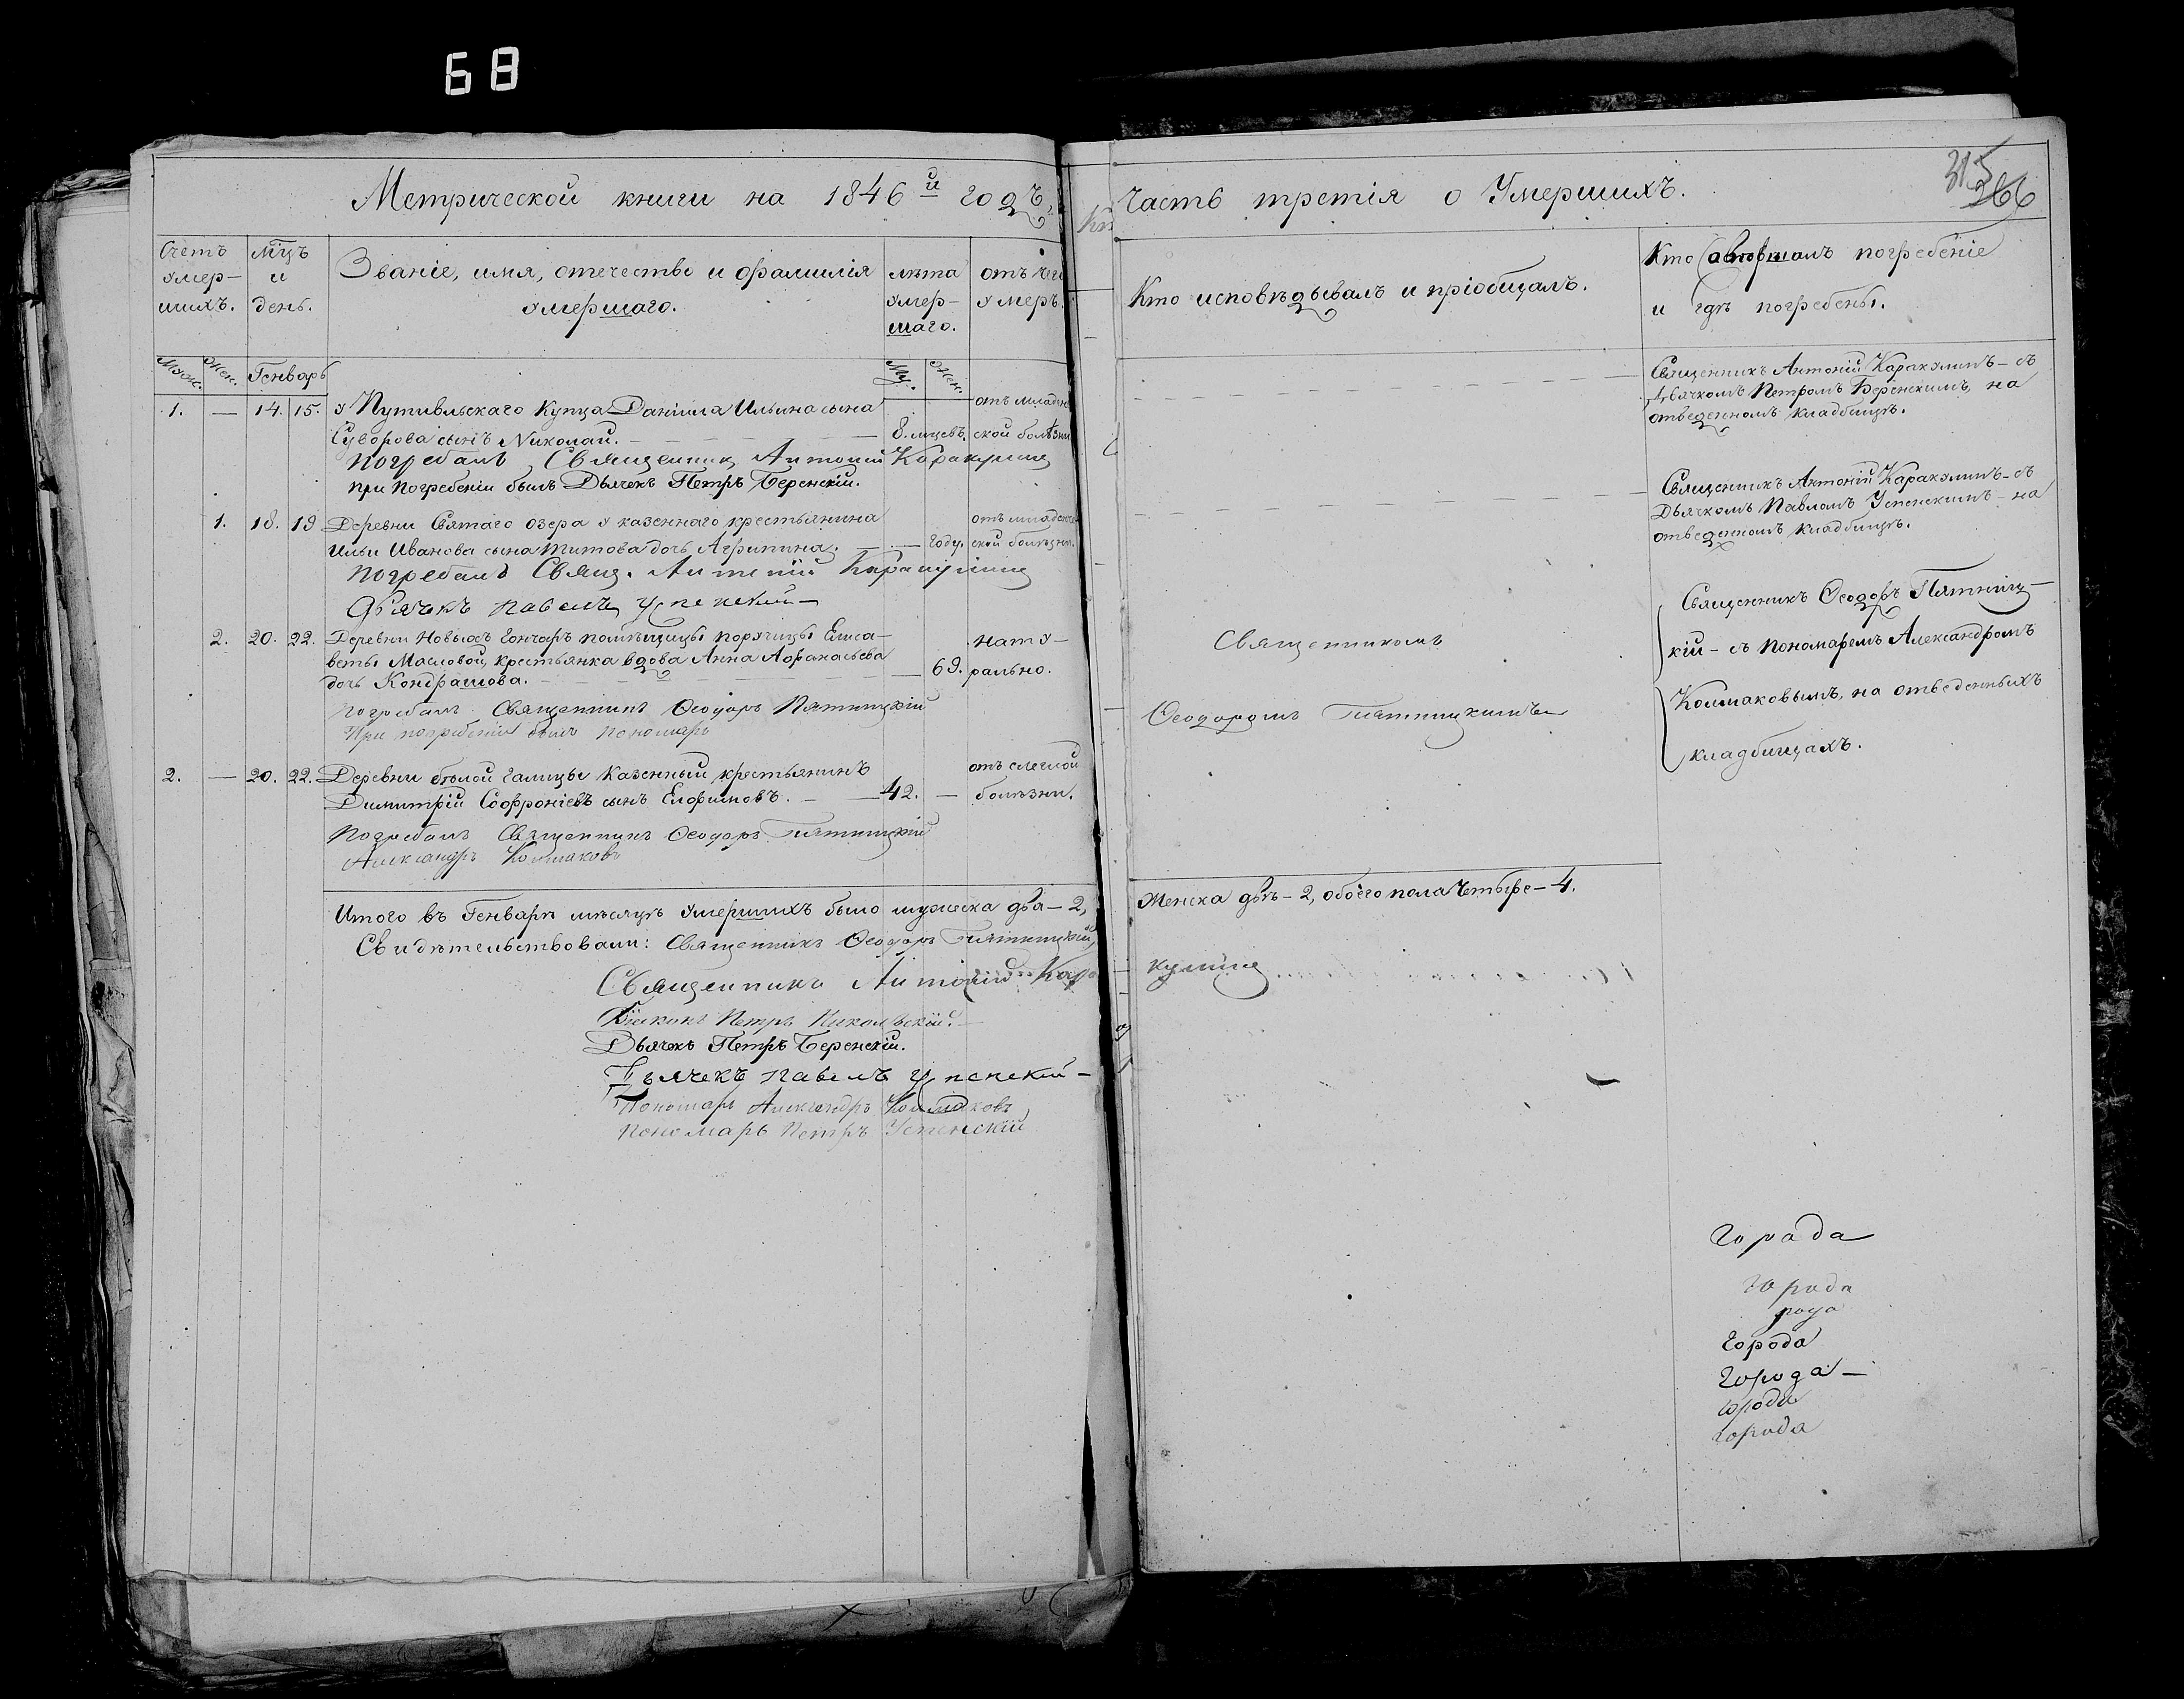 68
Метрической книги на 1846й годъ,
Счетъ умер-шихъ.
Мцъ и день.
Званіе, имя, отечество и фамилія умершаго.
лѣта умер-шаго.
отъ чего умеръ.
Муж. Жен. Генварь
Му. Жен.
1. — 14. 15. у Путивльскаго Купца Даніила Ильина сына
отъ младен
Суворова сынъ Николай. — 8. мцевъ. ской болѣзни
Погребалъ Священникъ Антоній Каракулинъ
При погребеніи былъ Дьячекъ Петръ Беренскій.
1. 18. 19 Деревни Святаго озера у казеннаго крестьянина
отъ младенче
Ильи Иванова сына Титова дочь Агрипина. — — году. ской болѣзни.
Погребалъ Свящ. Антоній Каракулинъ
Дьячекъ Павелъ Успенскій —
2. 20. 22. Деревни Новыхъ Гончаръ помѣщицы поручицы Елиса-
нату-
веты Масловой, крестьянка вдова Анна Афанасьева
дочь Кондрашова. — 69. рально.
Погребалъ Священникъ Ѳеодоръ Пятницкій
При погребеніи былъ Пономарь
2. — 20. 22. Деревни бѣлой Галицы Казенный крестьянинъ
отъ слеглой
Димитрій Софроніевъ сынъ Ефимовъ. — 42. — болѣзни.
Погребалъ Священникъ Ѳеодоръ Пятницкій
Александръ Колмаковъ
Итого въ Генварѣ мѣсяцѣ умершихъ было мужеска два — 2,
Свидѣтельствовали: Священникъ Ѳеодоръ Пятницкій
Священникъ Антоній Кара
Діаконъ Петръ Никольскій.
Дьячекъ Петръ Беренскій.
Дьячекъ Павелъ Успенскій —
Пономарь Александръ Колмаковъ
Пономарь Петръ Успенскій
Часть третія о Умершихъ.
315
266
Кто исповѣдывалъ и пріобщалъ.
Кто совершалъ погребеніе
и гдѣ погребены.
Священникъ Антоній Каракулинъ — съ
Дьячкомъ Петромъ Беренскимъ, на
отведенномъ кладбищѣ.
Священникъ Антоній Каракулинъ — съ
Дьячкомъ Павломъ Успенскимъ — на
отведенномъ кладбищѣ.
Священникомъ
Ѳеодоромъ Пятницкимъ
Священникъ Ѳеодоръ Пятниц-
кій — съ пономаремъ Александромъ
Колмаковымъ, на отведенныхъ
кладбищахъ.
Женска двѣ — 2, обоего пола Четыре — 4.
кулинъ
Города
города
рода
Города
Города —
города
города